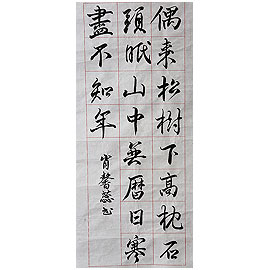 偶来松樹下高枕石
頭眠山中無曆日寒
盡不知年
肖馨蕊书